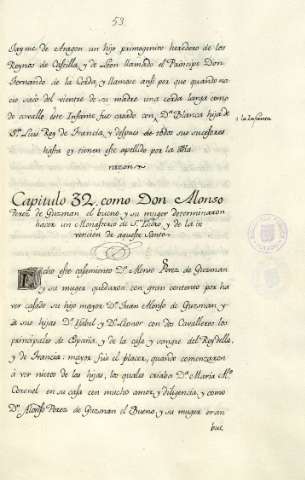 53
Jayme de Aragon un hijo primogenito heredero de los
Reynos de Castilla, y de Leon llamado el Principe Don
Fernando de la Cerda, y llamose ansi por que quando na
cio saco del vientre de su madre una cerda larga como
de cavallo este Infante fue casado con Dª Blanca hija de
Sn. Luis Rey de Francia, y despues de todos sus sucesores
hasta oy tienen este apellido por la dha
razon
a la Infanta
Capitulo 32. como Don Alonso
Perez de Guzman el bueno y su muger determinaron
hacer un Monasterio de Sn. Isidro y de la in
vencion de aqueste Santo.
Hecho este casamiento Dn. Alonso Perez de Guzman
y su muger quedaron con gran contento por ha
ver casado su hijo mayor Dn. Juan Alonso de Guzman y
a sus hijas Dª Isabel y Dª Leonor con dos Cavalleros los
principales de España, y de la casa y sangre del Rey della,
y de Francia: mayor fue el placer, quando comenzaron
à ver nietos de las hijas, los quales criaba Dª Maria Ms.
Coronel en su casa con mucho amor, y diligencia, y como
Dn. Alonso Perez de Guzman el Bueno y su muger eran
bue